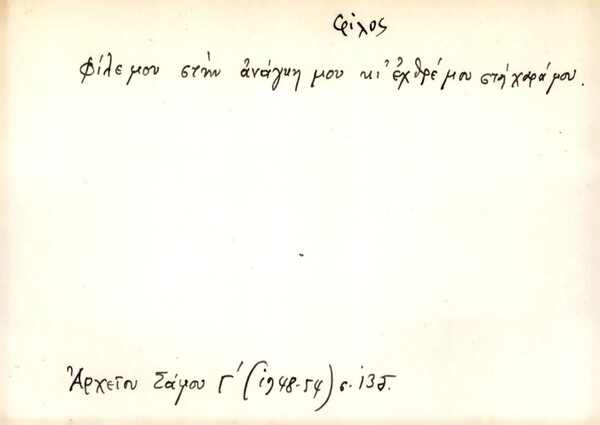 φίλος
Φίλε μου στὴν ἀνάγκη μου κι' ἐχθρέ μου στὴ χαρά μου.
Ἀρχεῖον Σάμου Γ' (1948-54) σ. 135.